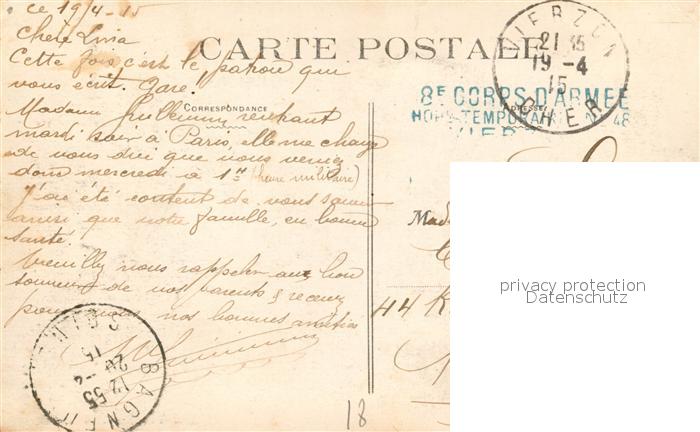 ce 19/4-15
Chère Livia
Cette fois c'est le patron qui
vous écrit. Gare.
Madame Guillemin rentrant
mardi soir à Paris, elle me charge
de vous dire que vous veniez
donc mercredi à 1h (heure militaire)
J'ai été content de vous savoir
ainsi que votre famille, en bonne
santé.
Veuillez nous rappeler au bon
souvenir de vos parents & recevez
pour vous nos bonnes amitiés
CARTE POSTALE
CORRESPONDANCE
VIERZON
21 35
19-4
15
CHER
8E CORPS D'ARMÉE
HOP. TEMPORAIRE N° 48
VIER
Mad
44
BAGNEUX
SEINE
12 55
20-4
15
18
privacy protection
Datenschutz